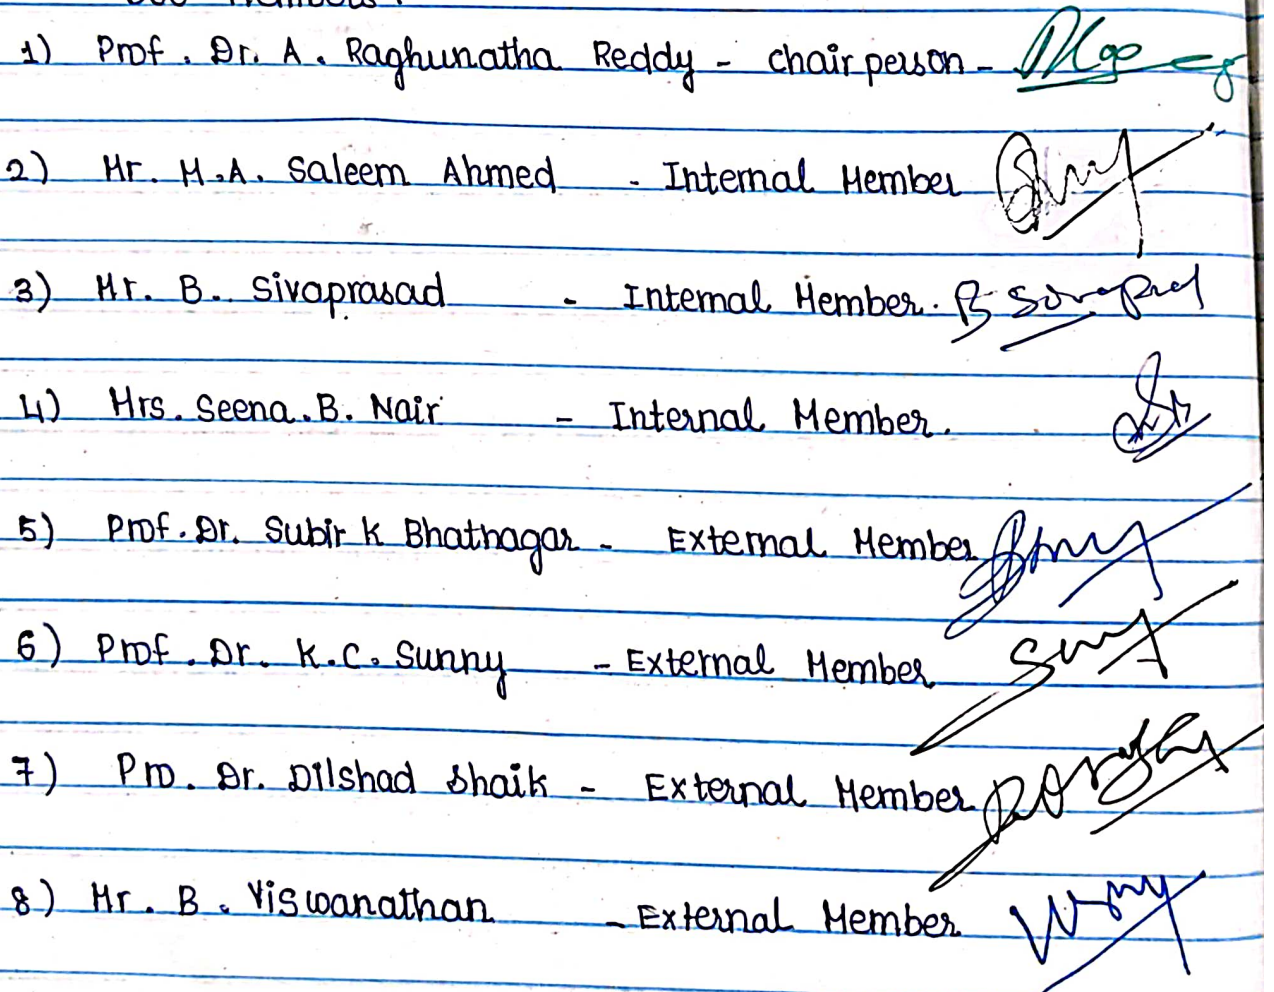 1) Prof. Dr. A. Raghunatha Reddy - chairperson -
2) Mr. M.A. Saleem Ahmed - Internal Member
3) Mr. B. Sivaprasad - Internal Member. B Sivaprasad
4) Mrs. Seena.B. Nair - Internal Member.
5) Prof. Dr. Subir K Bhatnagar - External Member
6) Prof. Dr. K.C. Sunny - External Member
7) Pro. Dr. Dilshad Shaik - External Member
8) Mr. B. Viswanathan - External Member